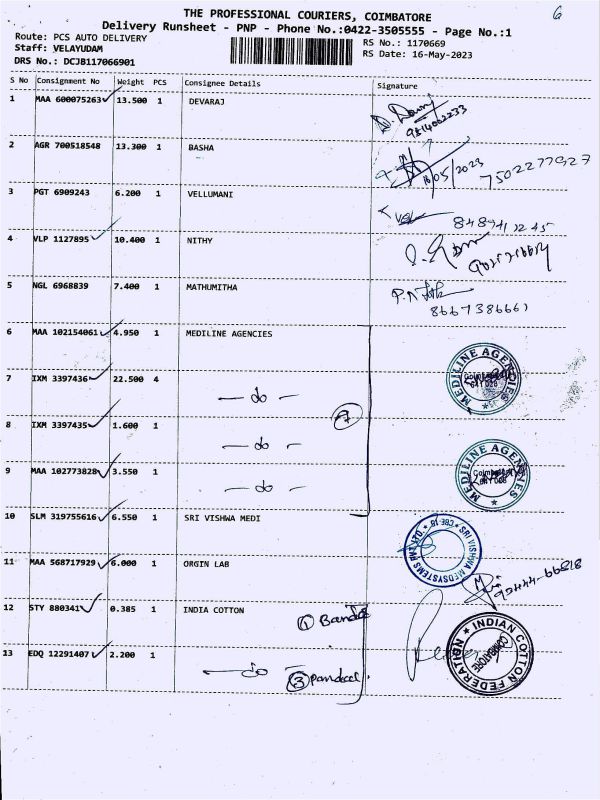 6
THE PROFESSIONAL COURIERS, COIMBATORE
Delivery Runsheet - PNP - Phone No.:0422-3505555 - Page No.:1
Route: PCS AUTO DELIVERY
RS No.: 1170669
Staff: VELAYUDAM
RS Date: 16-May-2023
DRS No.: DCJB117066901
S No Consignment No Weight PCS Consignee Details Signature
1 MAA 600075263 13.500 1 DEVARAJ
2 AGR 700518548 13.300 1 BASHA
16/05/2023 7502277927
3 PGT 6909243 6.200 1 VELLUMANI
4 VLP 1127895 10.400 1 NITHY
5 NGL 6968839 7.400 1 MATHUMITHA
6 MAA 102154061 4.950 1 MEDILINE AGENCIES
7 IXM 3397436 22.500 4 do
MEDILINE AGENCIES
7
8 IXM 3397435 1.600 1 do
9 MAA 102773828 3.550 1 do
MEDILINE AGENCIES
10 SLM 319755616 6.550 1 SRI VISHWA MEDI
SRI VISHWA MEDSYSTEMS PVT. LTD.
11 MAA 568717929 6.000 1 ORGIN LAB
12 STY 880341 0.385 1 INDIA COTTON
13 EDQ 12291407 2.200 1 do
INDIAN COTTON FEDERATION
COIMBATORE